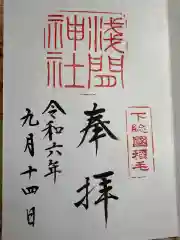 浅間
神社
下総國稲毛
奉拝
令和六年
九月十四日